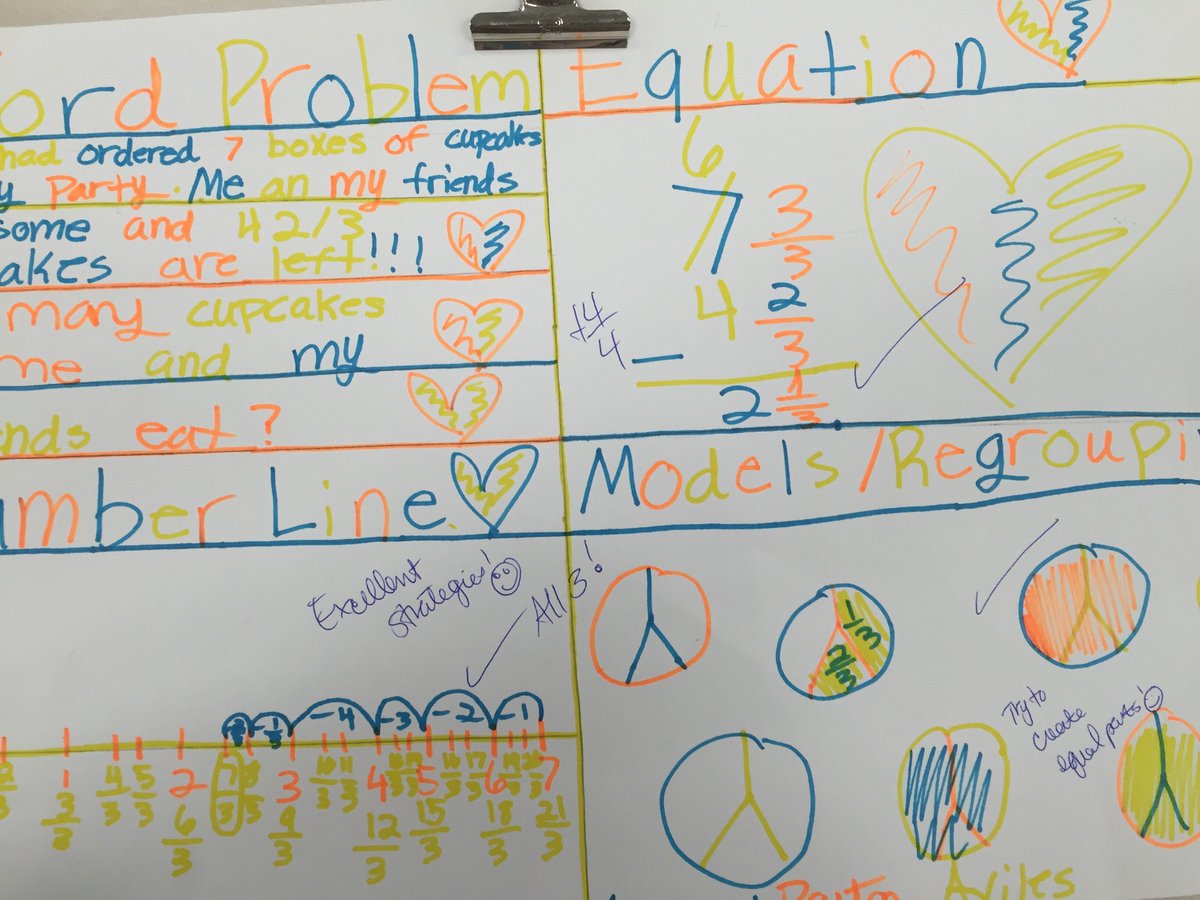 ord Problem
had ordered 7 boxes of cupcakes
y Party. Me an my friends
some and 4 2/3
akes are left!!!
many cupcakes
me and my
nds eat?
Equation
6
7 3/3
4 2/3
+4/4
−
2 1/3
mber Line
Excellent
strategies!
All 3!
-1/3 -4 -3 -2 -1
1 2 3 4 5 6 7
3/3 4/3 5/3 6/3 7/3 9/3 12/3 15/3 18/3 21/3
Models/Regroupi
2/3 -1/3
Try to
create
equal parts!
Aviles